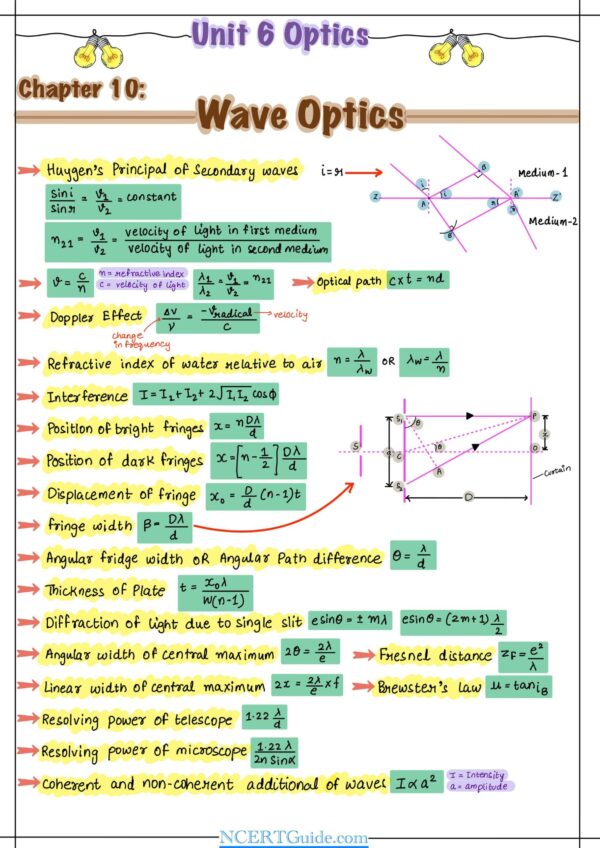 Unit 6 Optics
Chapter 10:
Wave Optics
Huygen's Principal of Secondary waves
i=r
sin i / sin r = v₁/v₂ = constant
n₂₁ = v₁/v₂ = velocity of light in first medium / velocity of light in second medium
Medium-1
Medium-2
Z A A' Z'
B B' i i r r
v = c/n
n = refractive index
c = velocity of light
λ₁/λ₂ = v₁/v₂ = n₂₁
Optical path c×t = nd
Doppler Effect Δν/ν = -v radical/c
velocity
change in frequency
Refractive index of water relative to air n = λ/λw OR λw = λ/n
Interference I = I₁+I₂+2√I₁I₂ cosϕ
Position of bright fringes x = nDλ/d
Position of dark fringes x = [n-1/2] Dλ/d
Displacement of fringe x₀ = D/d (n-1)t
fringe width β = Dλ/d
S S₁ S₂ C A P O d D x θ θ
Curtain
Angular fridge width OR Angular Path difference θ = λ/d
Thickness of Plate t = x₀λ/W(n-1)
Diffraction of light due to single slit esinθ = ± mλ esinθ = (2m+1) λ/2
Angular width of central maximum 2θ = 2λ/e
Fresnel distance ZF = e²/λ
Linear width of central maximum 2x = 2λ/e × f
Brewster's Law μ = tan iB
Resolving power of telescope 1.22 λ/d
Resolving power of microscope 1.22 λ/2n Sinα
coherent and non-coherent additional of waves I ∝ a²
I = Intensity
a = amplitude
NCERTGuide.com